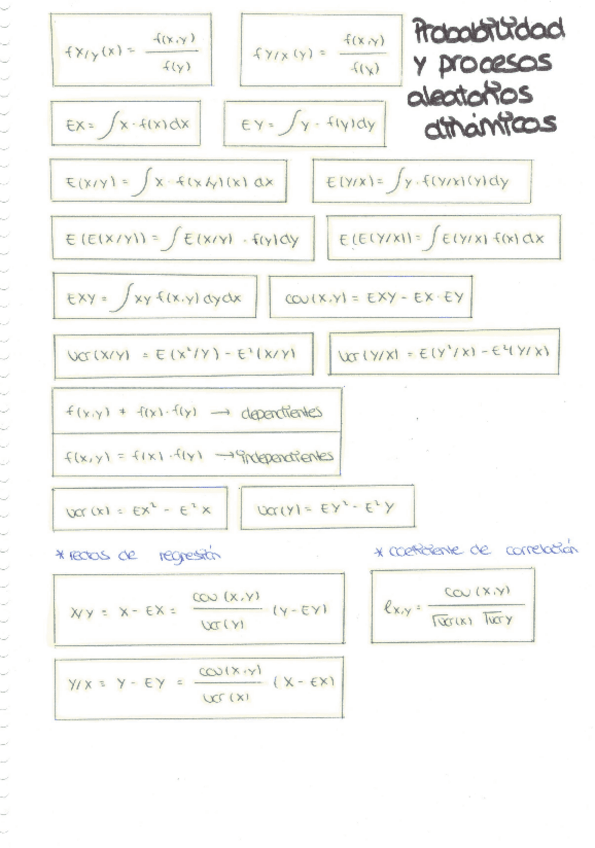 Probabilidad
y procesos
aleatorios
dinámicos
fX/y(x) = f(x,y) / f(y)
fY/x(y) = f(x,y) / f(x)
EX = ∫x·f(x)dx
EY = ∫y·f(y)dy
E(X/Y) = ∫x·f(x/y)(x) dx
E(Y/X) = ∫y·f(Y/x)(y)dy
E(E(X/Y)) = ∫E(X/Y)·f(y)dy
E(E(Y/X)) = ∫E(Y/X) f(x)dx
EXY = ∫xy f(x,y) dydx
cov(X,Y) = EXY - EX·EY
Var(X/Y) = E(X²/Y) - E²(X/Y)
Var(Y/X) = E(Y²/X) - E²(Y/X)
f(x,y) ≠ f(x)·f(y) → dependientes
f(x,y) = f(x)·f(y) → independientes
Var(X) = EX² - E²X
Var(Y) = EY² - E²Y
* rectas de regresión
* coeficiente de correlación
X/Y = X - EX = cov(X,Y) / Var(Y) (Y-EY)
ρx,y = cov(X,Y) / √Var(x) √Var y
Y/X = Y - EY = cov(X,Y) / Var(X) (X-EX)